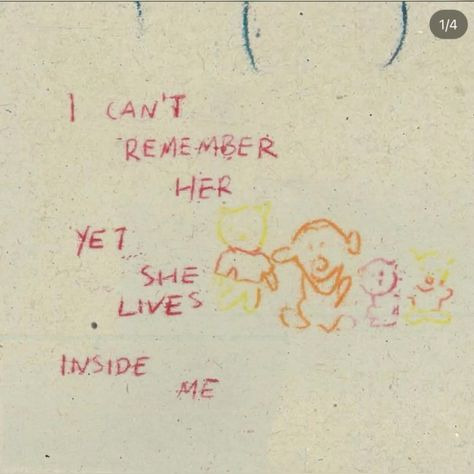 1/4
I CAN'T
REMEMBER
HER
YET
SHE
LIVES
INSIDE
ME